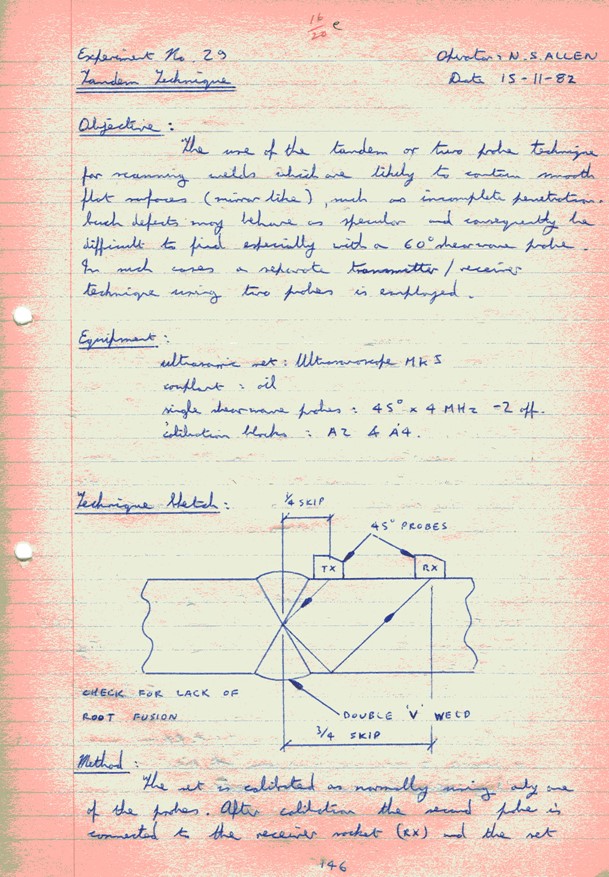 16
20 e
Experiment No. 29
Operator: N.S ALLEN
Tandem Technique
Date 15-11-82
Objective :
The use of the tandem or two probe technique
for scanning welds which are likely to contain smooth
flat surfaces (mirror like), such as incomplete penetration.
Such defects may behave as specular and consequently be
difficult to find especially with a 60° shearwave probe.
In such cases a separate transmitter / receiver
technique using two probes is employed.
Equipment :
ultrasonic set : Ultrasonoscope Mk
couplant : oil
single shearwave probes : 45° x 4 MHz -2 off.
calibration blocks : A2 & A4.
Technique Sketch :
1/4 SKIP
45° PROBES
TX
RX
CHECK FOR LACK OF
ROOT FUSION
DOUBLE 'V' WELD
3/4 SKIP
Method :
The set is calibrated as normally using only one
of the probes. After calibration the second probe is
connected to the receiver socket (RX) and the set
146